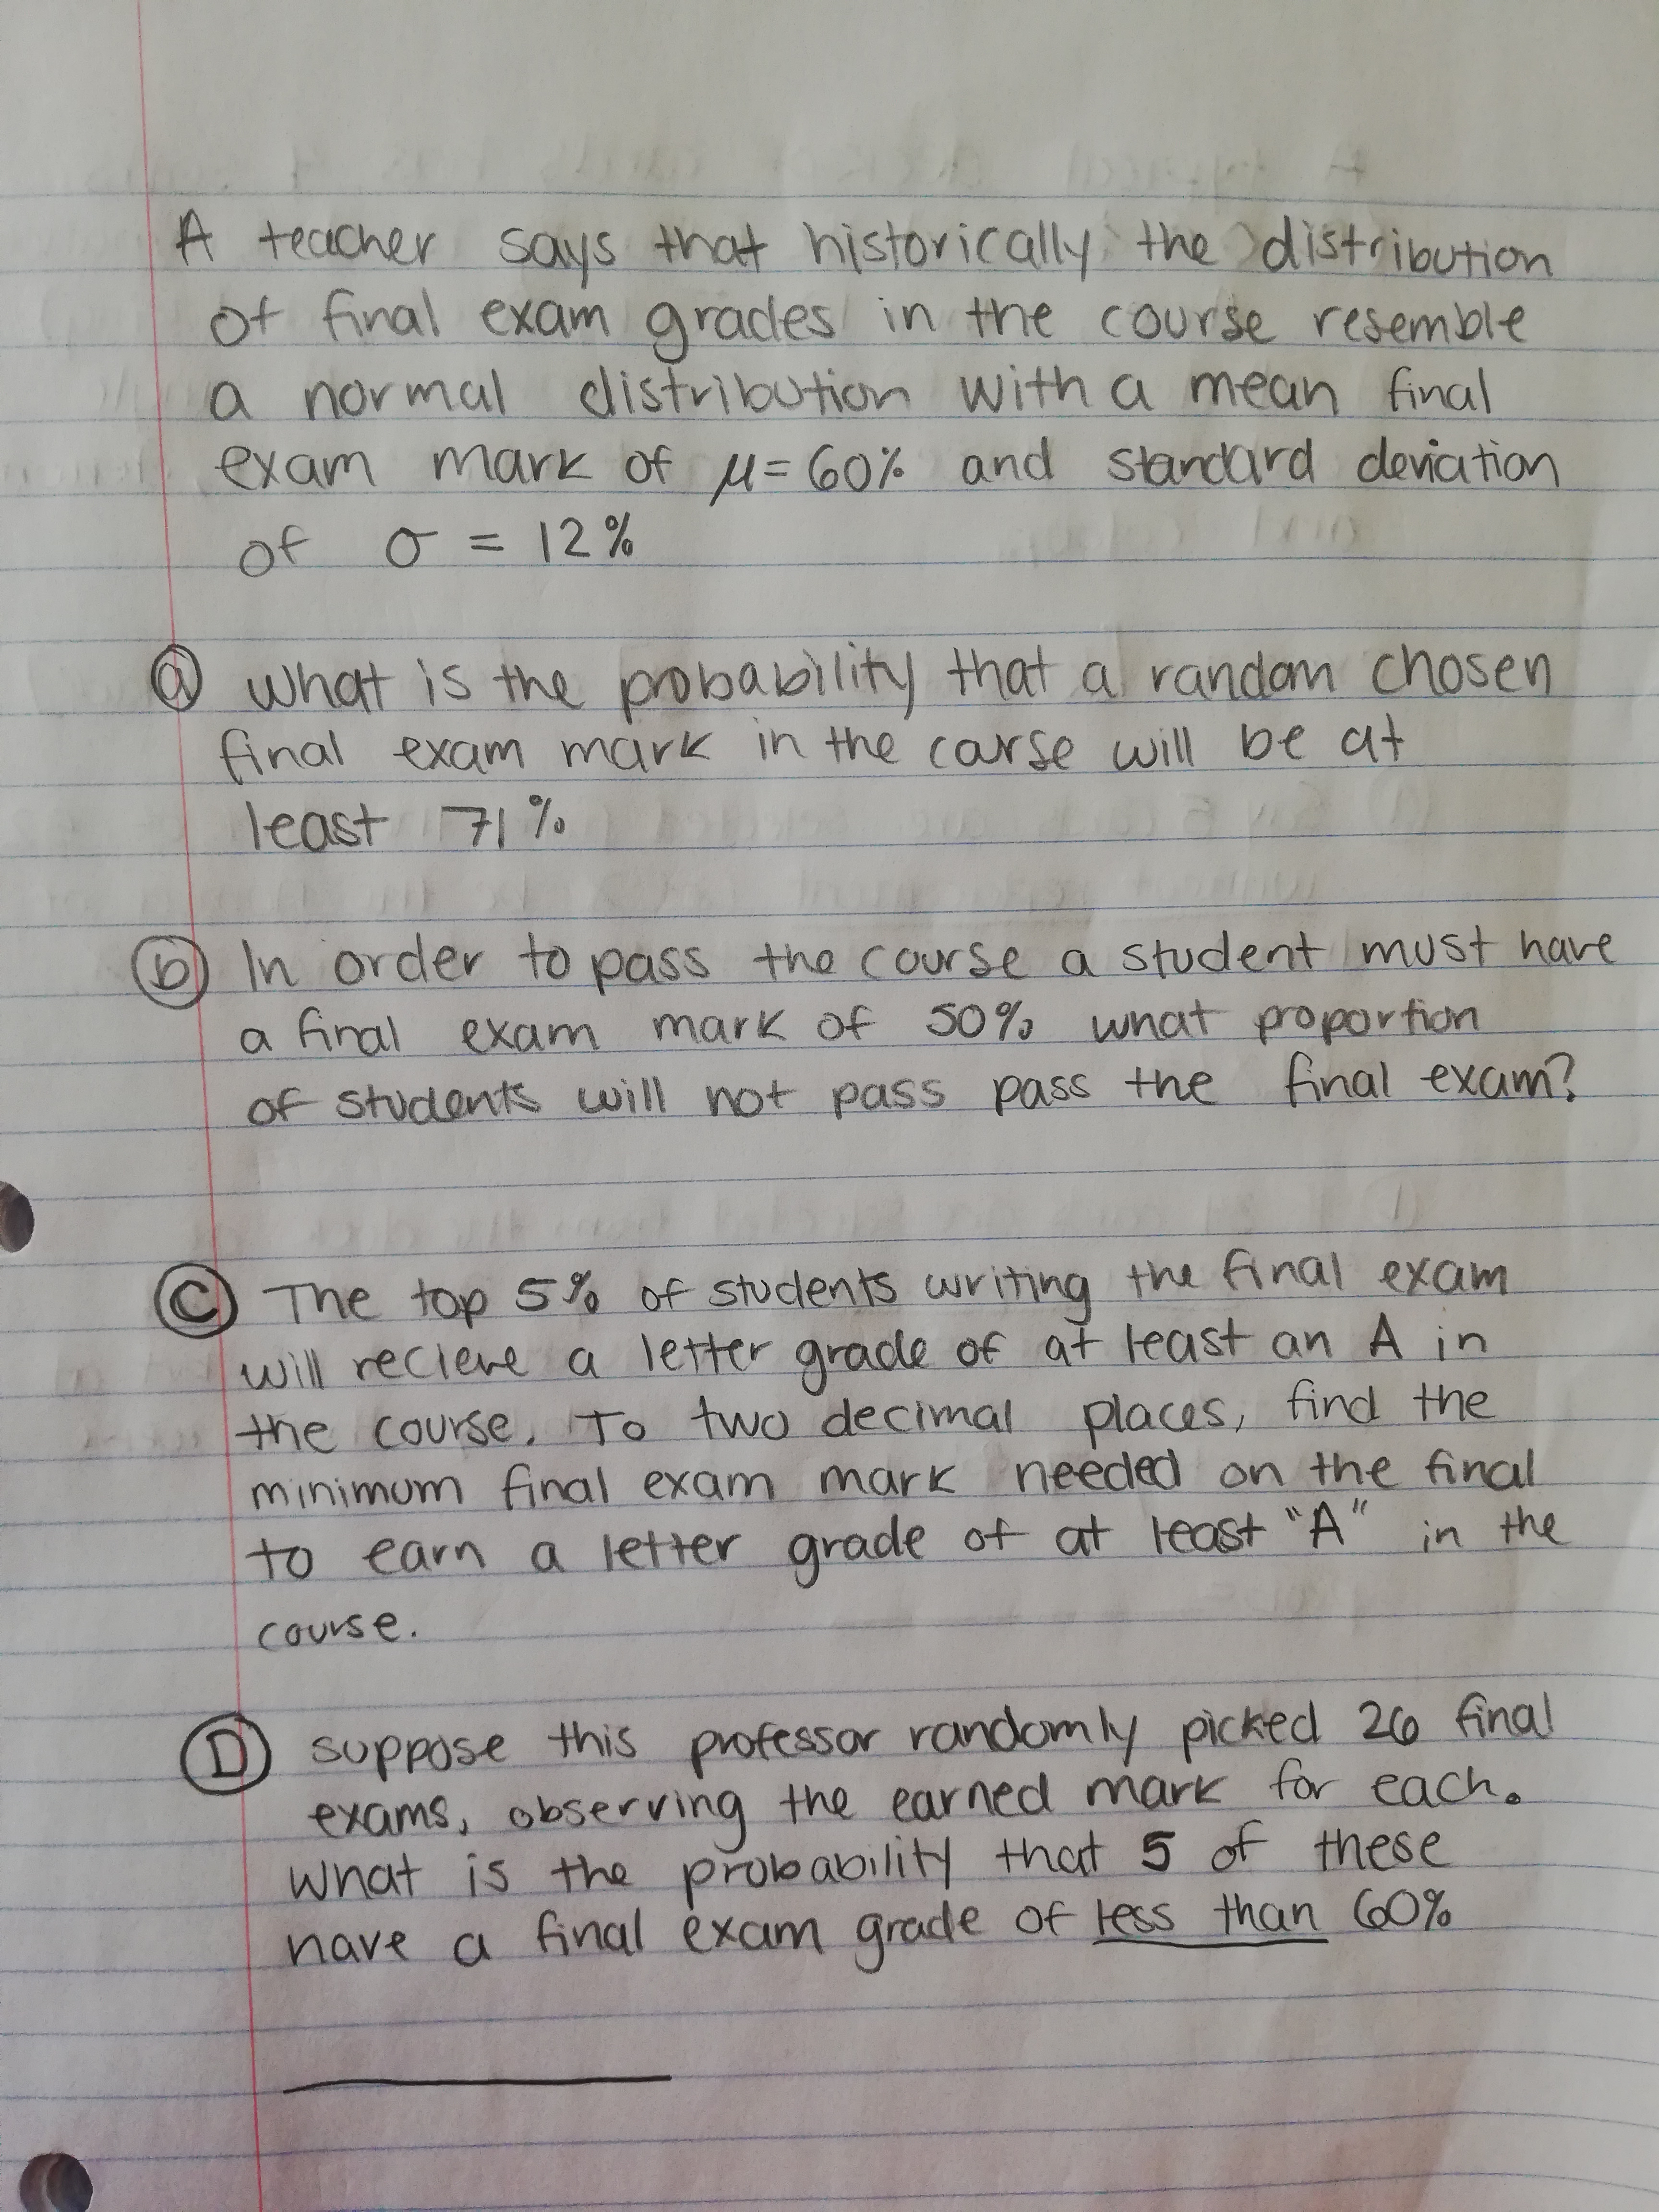 A teacher says that historically the distribution
of final exam grades in the course resemble
a normal distribution with a mean final
exam mark of μ=60% and standard deviation
of σ = 12%
ⓐ what is the probability that a random chosen
final exam mark in the carse will be at
least 71%
ⓑ In order to pass the course a student must have
a final exam mark of 50% what proportion
of students will not pass pass the final exam?
Ⓒ The top 5% of students writing the final exam
will recieve a letter grade of at least an A in
the course. To two decimal places, find the
minimum final exam mark needed on the final
to earn a letter grade of at least "A" in the
course.
Ⓓ suppose this professor randomly picked 26 final
exams, observing the earned mark for each.
What is the probability that 5 of these
have a final exam grade of less than 60%